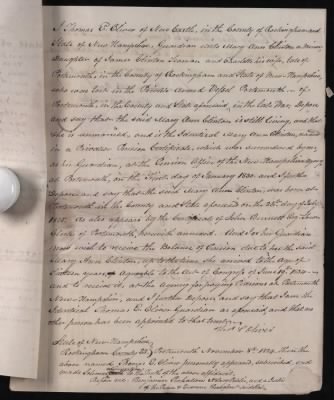 I Thomas E. Oliver of New Castle, in the County of Rockingham and
State of New Hampshire, Guardian unto Mary Ann Clinton a Minor
Daughter of James Clinton Seaman and Charlotte his wife, late of
Portsmouth, in the County of Rockingham and State of New Hampshire,
who was lost in the Private Armed Vessel Portsmouth of
Portsmouth, in the County and State aforesaid, in the late War, Depose
and say that the said Mary Ann Clinton is still living, and that
she is unmarried, and is the Identical Mary Ann Clinton, named
in a Privateer Pension Certificate, which was surrendered by me,
as her Guardian, at the Pension Office, of the New Hampshire Agency
at Portsmouth, on the first day of January 1830. and I further
Depose and say that the said Mary Ann Clinton, was born at
Portsmouth in the County and State aforesaid on the 28th day of
As also appears by the Certificate of John Bennett Town
Clerk of Portsmouth, herewith annexed. And I as her Guardian
now wish to receive the Balance of Pension due to her the said
Mary Ann Clinton, up to the time she arrived to the age of
Sixteen years, agreeable to the Act of Congress of June
and to receive it, at the Agency for paying Pensions in Portsmouth
New Hampshire, and I further Depose and say that I am the
Identical Thomas E. Oliver Guardian as aforesaid, and that no
other person has been appointed to that
Thos E Oliver
State of New Hampshire,
Rockingham County SS, Portsmouth November 8th 1834. Then the
above named Thomas E. Oliver personally appeared, subscribed, and
made Solemn Oath to the truth of the above affidavit.
Before me